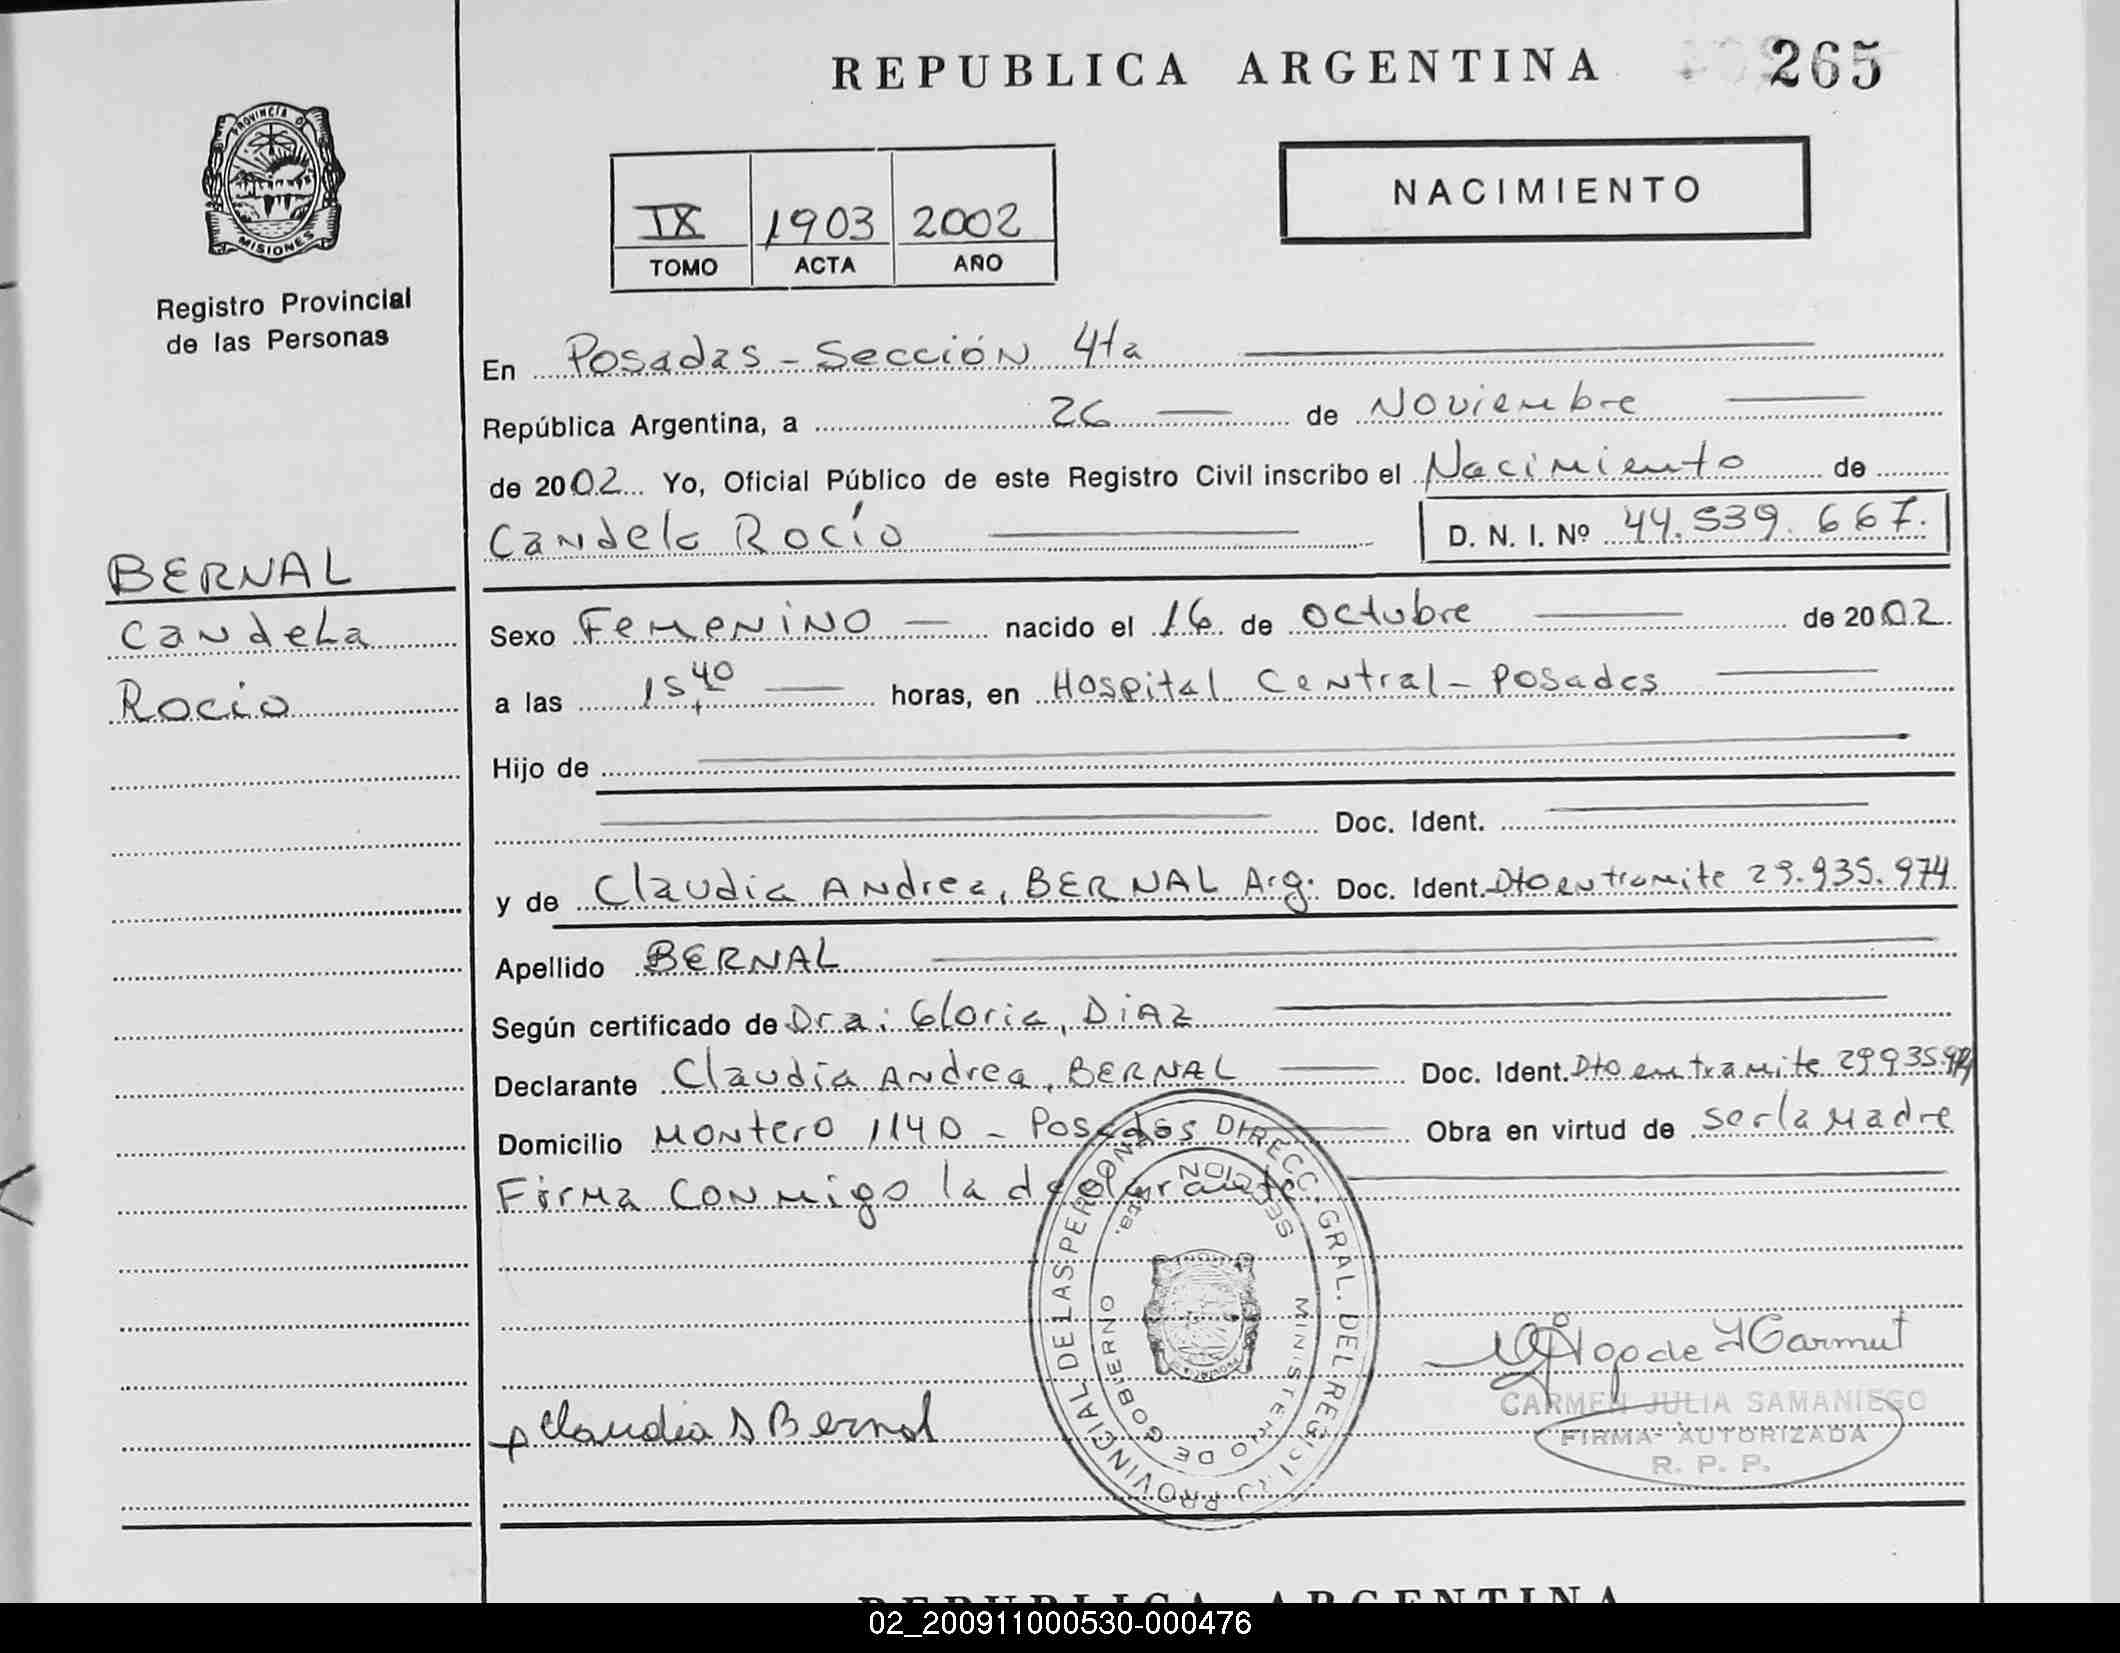 REPUBLICA ARGENTINA 265
PROVINCIA D
MISIONES
Registro Provincial
de las Personas
NACIMIENTO
IX 1903 2002
TOMO ACTA AÑO
En Posadas - Sección 4ta
República Argentina, a 26 de Noviembre
de 2002 Yo, Oficial Público de este Registro Civil inscribo el Nacimiento de
Candela Rocío D. N. I. Nº 44.539.667.
BERNAL
Candela
Rocio
Sexo Femenino nacido el 16 de octubre de 2002.
a las 15 40 horas, en Hospital Central - Posadas
Hijo de
Doc. Ident.
y de Claudia Andrea, BERNAL Arg. Doc. Ident. Dto en tramite 29.935.974
Apellido BERNAL
Según certificado de Dra: Gloria, DIAZ
Declarante Claudia Andrea, BERNAL Doc. Ident. Dto en tramite 29935.974
Domicilio Montero 1140 - Posadas Obra en virtud de ser la Madre
Firma conmigo la declarante
DIRECC. GRAL. DEL REGISTRO PROVINCIAL DE LAS PERSONAS
MINISTERIO DE GOBIERNO
SECCION 4ta.
Claudia A Bernal
CARMEN JULIA SAMANIEGO
FIRMA AUTORIZADA
R. P. P.
REPUBLICA ARGENTINA
02_200911000530-000476